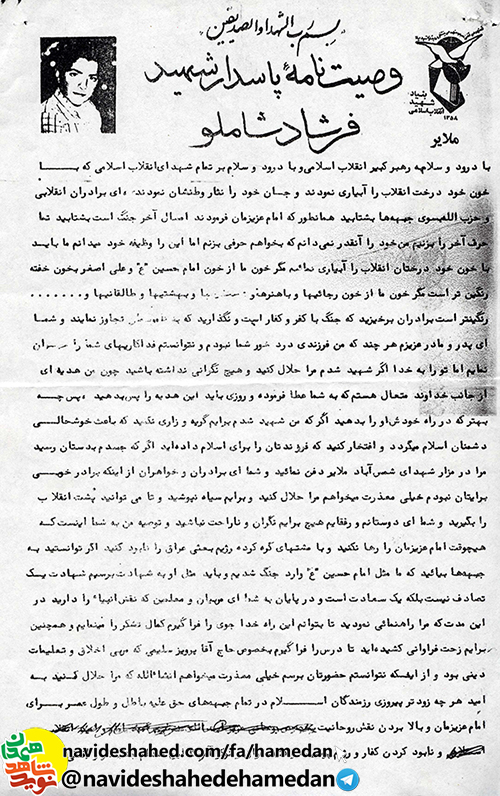 بسم رب الشهدا والصدیقین
وصیت نامهٔ پاسدار شهید
فرشاد شاملو
بنیاد
شهید
انقلاب اسلامی
۱۳۵۸
ملایر
با درود و سلام به رهبر کبیر انقلاب اسلامی و با درود و سلام بر تمام شهدای انقلاب اسلامی که بـــا
خون خود درخت انقلاب را آبیاری نمودند و جان خود را نثار وطنشان نمودند ای برادران انقلابی
و حزب اللهی بسوی جبهه‌ها بشتابید همانطور که امام عزیزمان فرمودند امسال آخر جنگ است بشتابید تما
حرف آخر را بزنیم من خود را آنقدر نمی‌دانم که بخواهم حرفی بزنم اما این را وظیفه خود میدانم ما بایـد
با خون خود درختان انقلاب را آبیاری نمائیم مگر خون ما از خون امام حسین "ع" و علی اصغر بخون خفته
رنگین تر است مگر خون ما از خون رجائیها و باهنرها و و بهشتیها و طالقانیها و ........
رنگینتر است برادران برخیزید که جنگ با کفر و کفار است و نگذارید که به تجاوز نمایند و شمـا
ای پدر و مادر عزیزم هر چند که من فرزندی درد خور شما نبودم و نتوانستم فداکاریهای شما را جبـران
نمایم اما تو را به خدا اگر شهید شدم مرا حلال کنید و هیچ نگرانی نداشته باشید چون من هدیه ای
از جانب خداوند متعال هستم که به شما عطا فرموده و روزی باید این هدیه را پس بدهید پس چـه
بهتر که در راه خودش او را بدهید اگر که من شهید شدم برایم گریه و زاری نکنید که باعث خوشحالـی
دشمنان اسلام میگردد و افتخار کنید که فرزندتان را برای اسلام داده‌اید اگر که جسدم بدستان رسید
مرا در مزار شهدای شمس‌آباد ملایر دفن نمائید و شما ای برادران و خواهران از اینکه برادر خوبـی
برایتان نبودم خیلی معذرت میخواهم مرا حلال کنید و برایم سیاه نپوشید و تا می توانید پشت انقلاب
را بگیرید و شما ای دوستانم و رفقایم هیچ برایم نگران و ناراحت نباشید و توصیه من به شما اینست کـه
هیچوقت امام عزیزمان را رها نکنید و با مشتهای گره کرده رژیم بعثی عراق را نابود کنید اگر توانستید بـه
جبهه‌ها بیائید که ما مثل امام حسین "ع" وارد جنگ شدیم و باید مثل او به شهادت برسیم شهادت یـک
تصادف نیست بلکه یک سعادت است و در پایان به شما ای مربیان و معلمین که نقش انبیاء را دارید در
این مدت که مرا راهنمائی نمودید تا بتوانم این راه خدا جوی را فرا گیرم کمال تشکر را مینمایم و همچنین
برایم زحت فراوانی کشیده‌اید تا درس را فرا گیرم بخصوص حاج آقا پرویز سلیمی که مربی اخلاق و تعلیمات
دینی بود و از اینکه نتوانستم حضورتان برسم خیلی معذرت میخواهم انشاءالله که مرا حلال کنیـد بـه
امید هر چه زودتر پیروزی رزمندگان اســـلام در تمام جبهه‌های حق علیه باطل و طول عمر بـرای
امام عزیزمان و بالا بردن نقش روحانیت
و نابود کردن کفار و رژیم
نوید
شاهد
همدان
navideshahed.com/fa/hamedan
@navideshahedehamedan